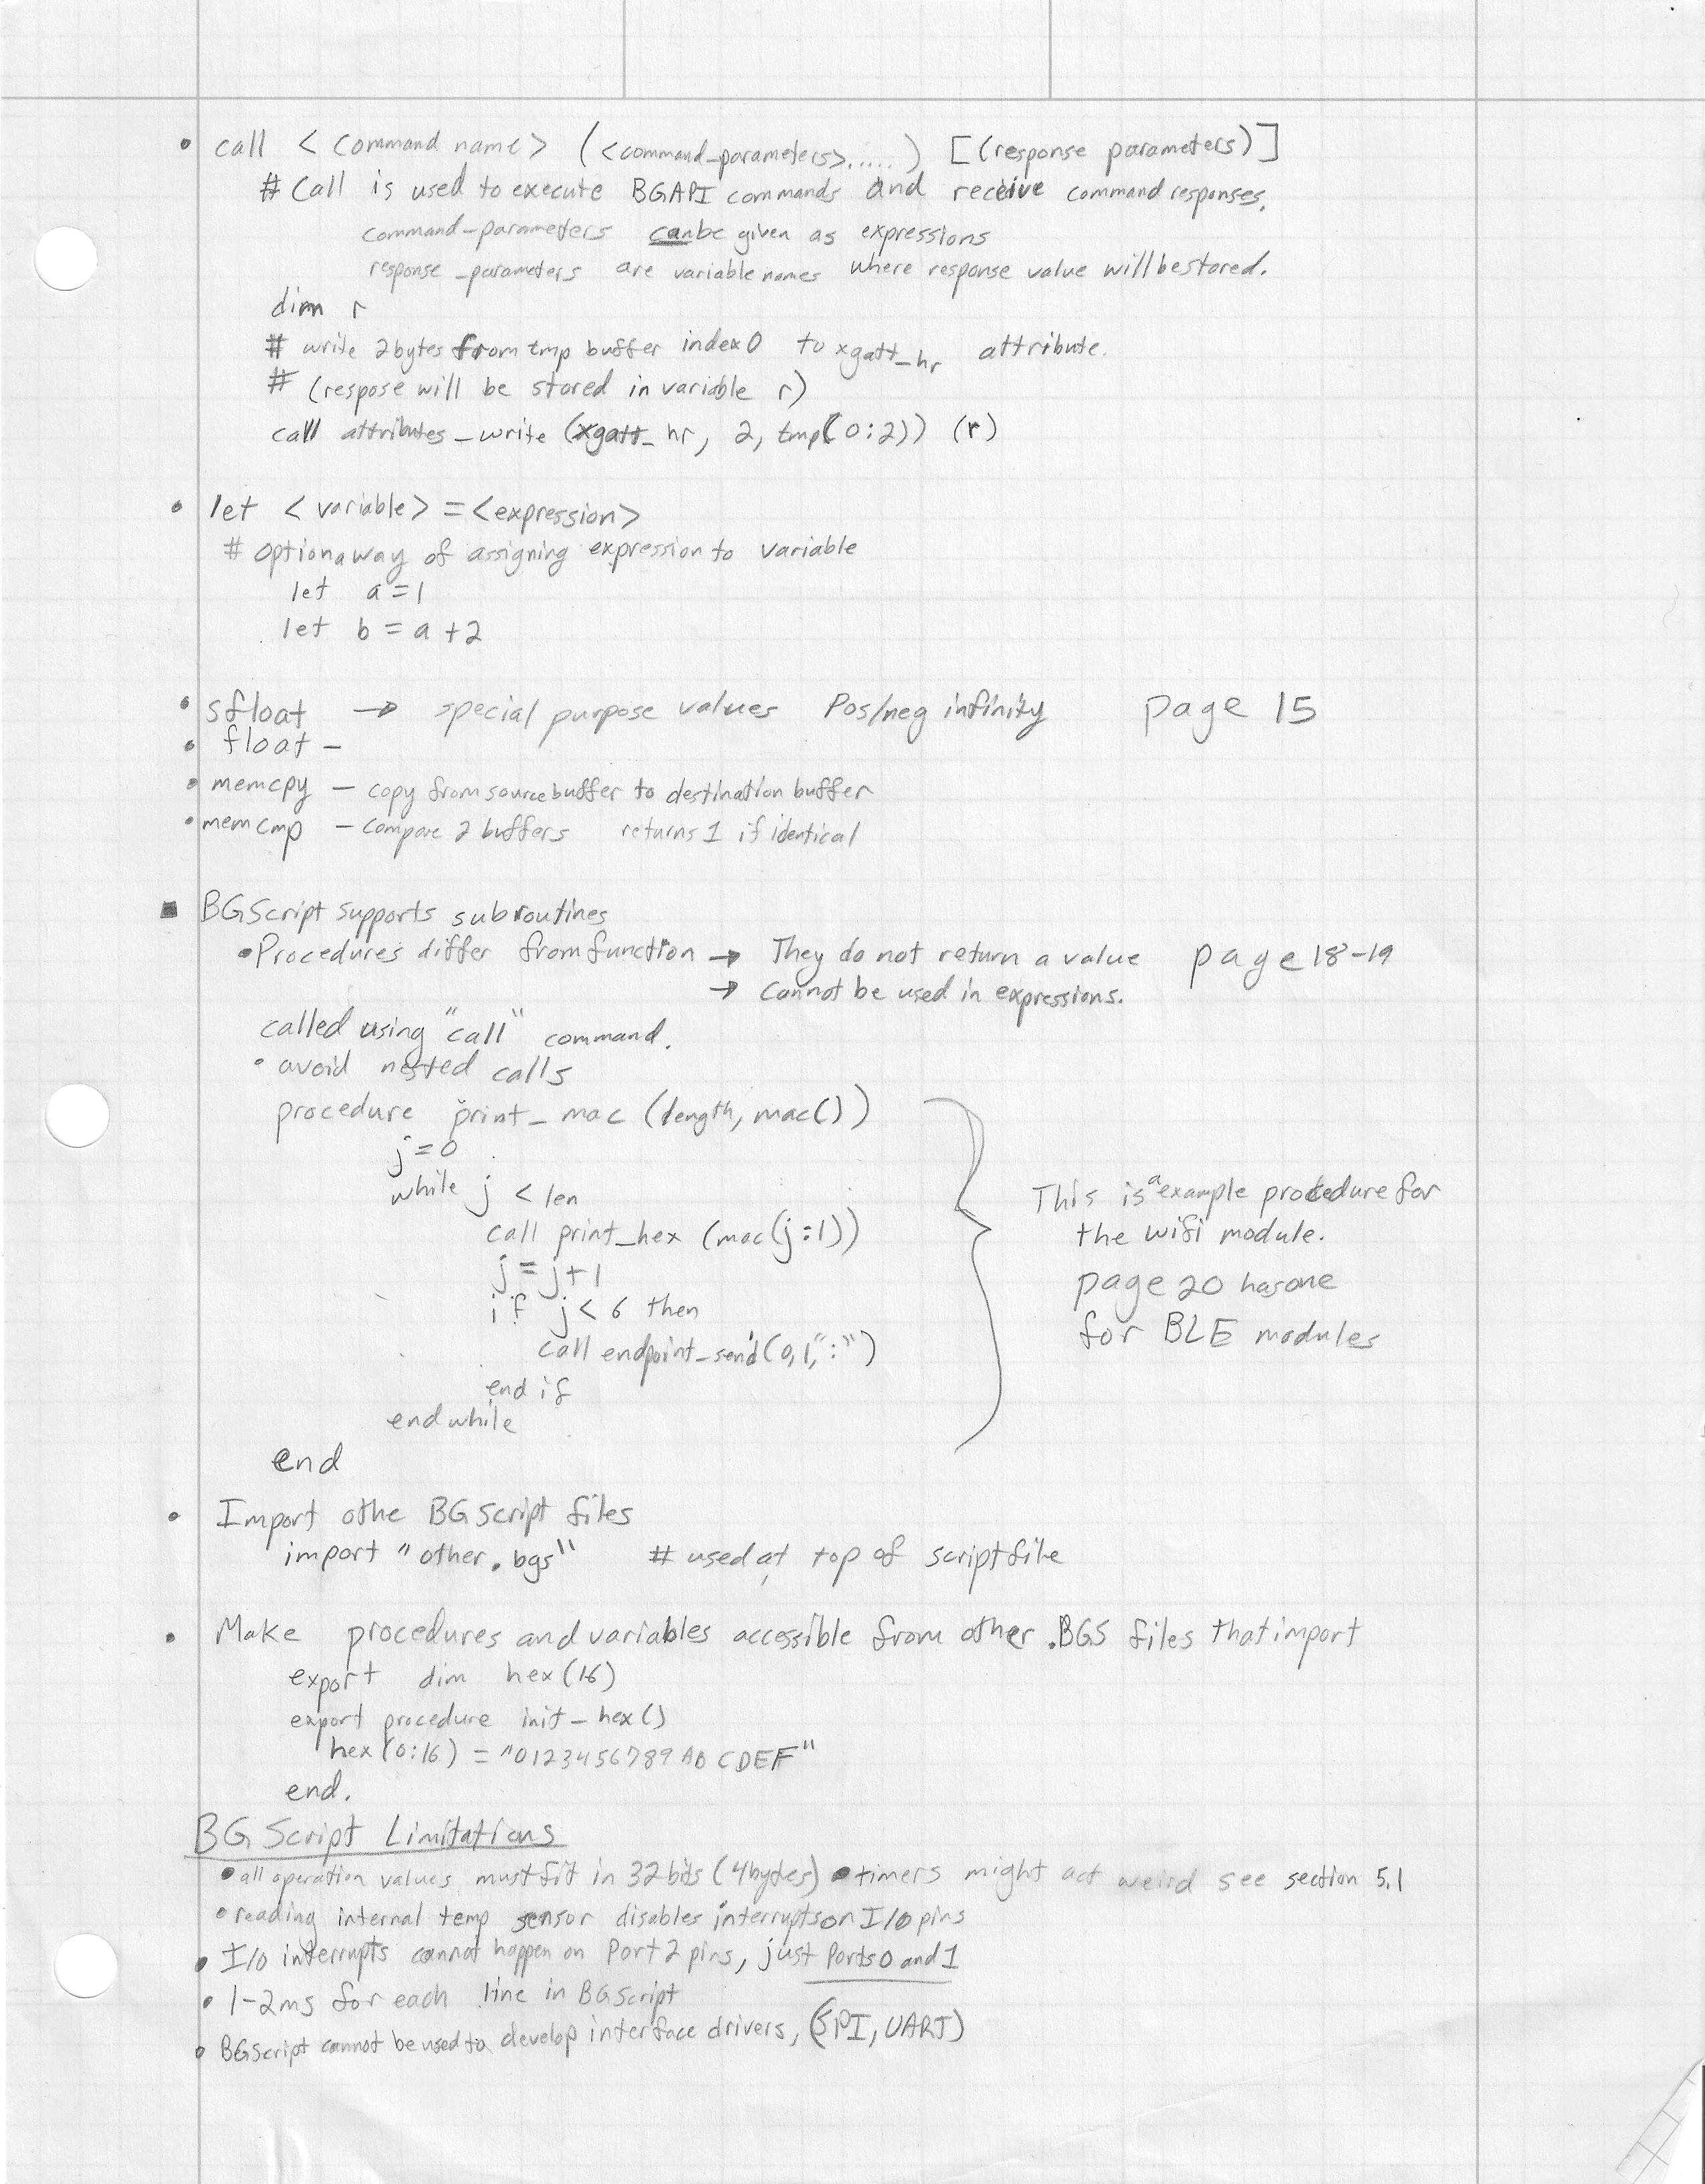 • call <command name> (<command_parameters>.....) [(response parameters)]
# Call is used to execute BGAPI commands and receive command responses.
command-parameters can be given as expressions
response_parameters are variable names where response value will be stored.
dim r
# write 2bytes from tmp buffer index 0 to xgatt_hr attribute.
# (respose will be stored in variable r)
call attributes_write (xgatt_hr, 2, tmp(0:2)) (r)
• let <variable> = <expression>
# optiona way of assigning expression to variable
let a=1
let b = a+2
• sfloat → special purpose values Pos/neg infinity page 15
• float -
• memcpy - copy from source buffer to destination buffer
• memcmp - compare 2 buffers returns 1 if identical
■ BGScript supports subroutines
• Procedures differ from function → They do not return a value page 18-19
→ Cannot be used in expressions.
called using "call" command.
• avoid nested calls
procedure print_mac (length, mac())
j=0
while j < len
call print_hex (mac(j:1))
j = j+1
if j < 6 then
call endpoint_send(0,1,":")
end if
end while
end
This is a example procedure for
the wifi module.
page 20 has one
for BLE modules
• Import othe BGScript files
import "other.bgs" # used at top of script file
• Make procedures and variables accessible from other .BGS files that import
export dim hex(16)
export procedure init_hex()
hex(0:16) = "0123456789ABCDEF"
end.
BGScript Limitations
• all operation values must fit in 32 bits (4bytes) • timers might act weird see section 5.1
• reading internal temp sensor disables interrupts on I/O pins
• I/O interrupts cannot happen on Port 2 pins, just Ports 0 and 1
• 1-2ms for each line in BGScript
• BGScript cannot be used to develop interface drivers, (SPI, UART)